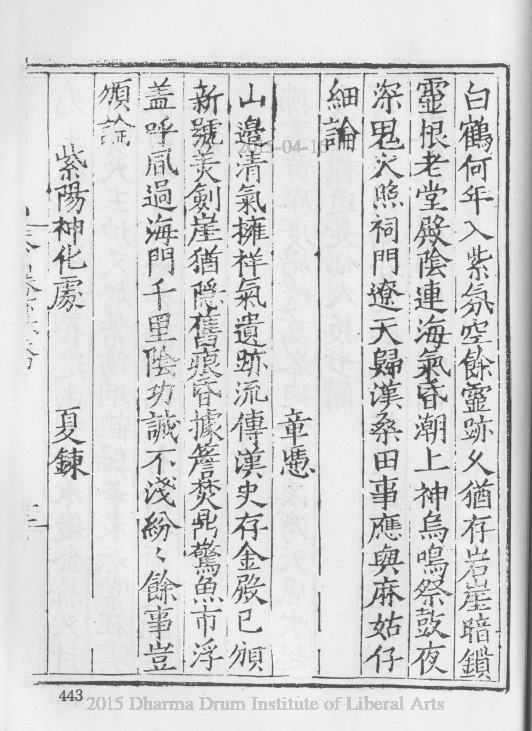 白鶴何年入紫氛空餘靈跡久猶存岩崖暗鎖
靈根老堂殿陰連海氣昏潮上神烏鳴祭鼓夜
深鬼火照祠門遼天歸漢桑田事應與麻姑仔
細論
章慿
山邉清氣擁祥氣遺跡流傳漢史存金殿已頒
新號美劍崖猶隠舊痕昏據簷焚鼎驚魚市浮
盖呼風過海門千里陰功誠不淺紛々餘事豈
煩論
紫陽神化處 夏鍊
443
2015-04-16
2015 Dharma Drum Institute of Liberal Arts